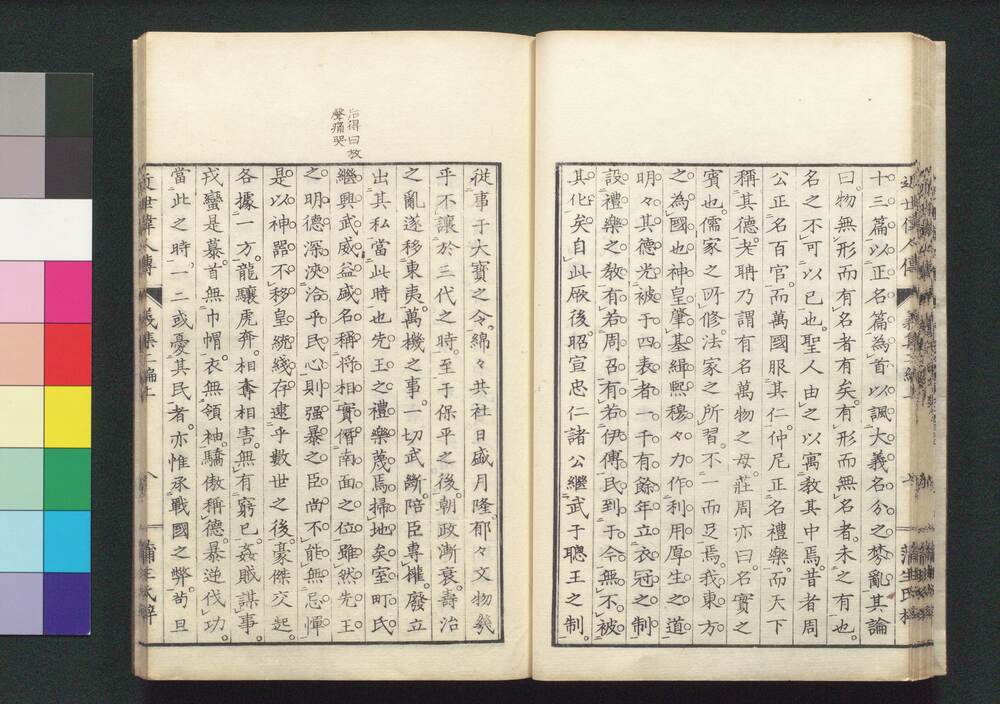 十三篇以正名篇為首以諷大義名分之棼亂其論
曰物無形而有名者有矣有形而無名者未之有也
名之不可以已也聖人由之以寓教其中焉昔者周
公正名百官而萬國服其仁仲尼正名禮樂而天下
稱其德老聃乃謂有名萬物之母莊周亦曰名實之
賓也儒家之所修法家之所習不一而足焉我東方
之為國也神皇肇基緝熙穆々力作利用厚生之道
明々其德光被于四表者一千有餘年立衣冠之制
設禮樂之教有若周召有若伊傅民到于今無不被
其化矣自此厥後昭宣忠仁諸公繼武于聰王之制
治得曰放
聲痛哭
從事于大寶之令綿々共社日盛月隆郁々文物幾
乎不讓於三代之時至于保平之後朝政漸衰壽治
之亂遂移東夷萬機之事一切武斷陪臣專權廢立
出其私當此時也先王之禮樂蔑焉掃地矣室町氏
繼興武威益盛名稱將相實僭南面之位雖然先王
之明德深浹洽乎民心則强暴之臣尚不能無忌憚
是以神器不移皇統綫存逮乎數世之後豪傑交起
各據一方龍驤虎奔相奪相害無有窮已姦賊謀事
戎蠻是慕首無巾帽衣無領袖驕傲稱德暴逆伐功
當此之時一二或憂其民者亦惟承戰國之弊苟且
近世偉人傳 義集二編上 八 蒲生氏梓